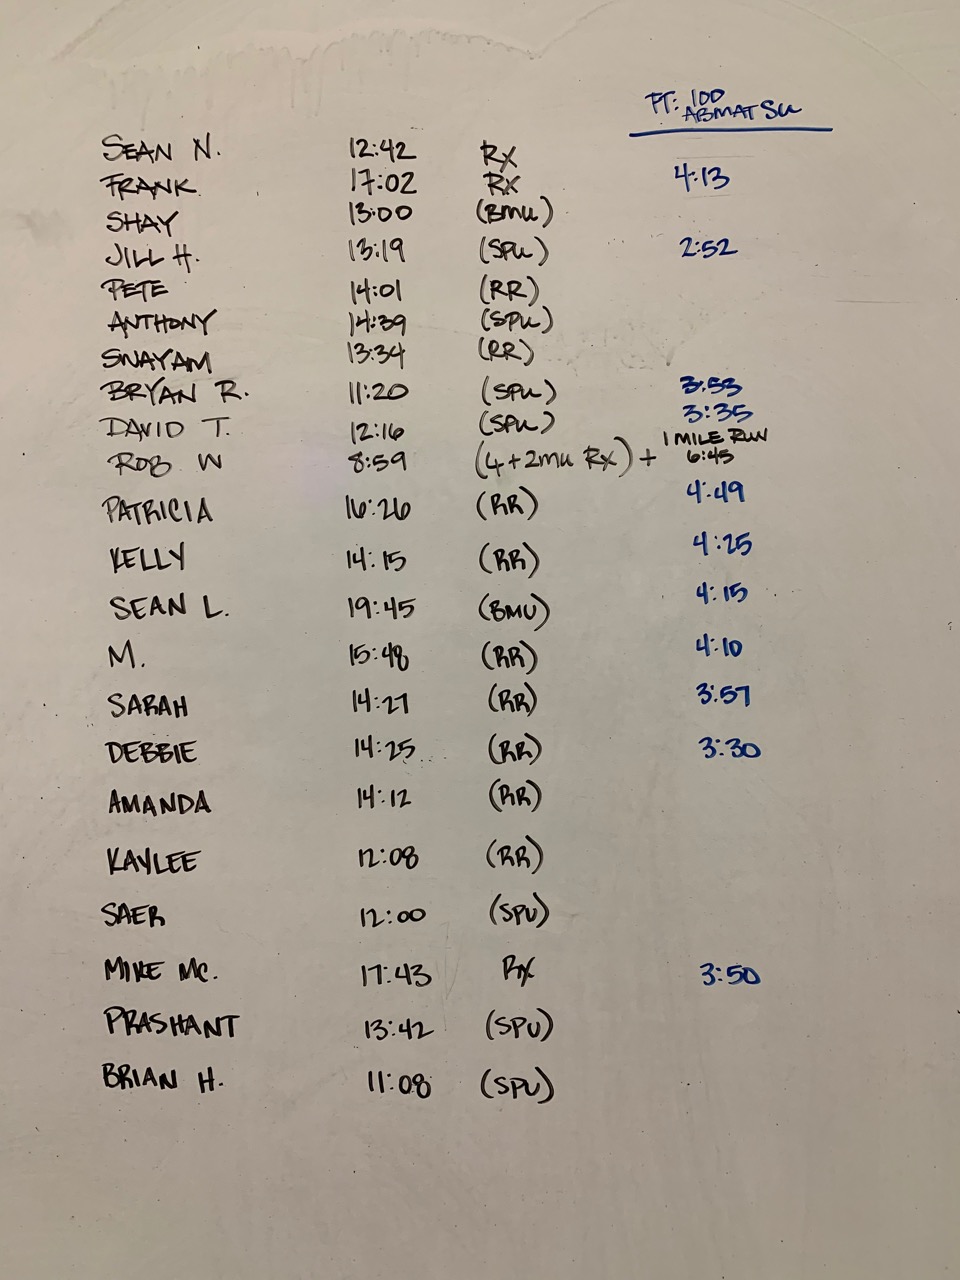 FT: 100
ABMAT SU
SEAN N. 12:42 RX
FRANK 17:02 RX 4:13
SHAY 13:00 (BMU)
JILL H. 13:19 (SPU) 2:52
PETE 14:01 (RR)
ANTHONY 14:39 (SPU)
SWAYAM 13:34 (RR)
BRYAN R. 11:20 (SPU) 3:53
DAVID T. 12:16 (SPU) 3:35
ROB W 8:59 (4+2MU RX) + 1 MILE RUN 6:45
PATRICIA 16:26 (RR) 4:49
KELLY 14:15 (RR) 4:25
SEAN L. 19:45 (BMU) 4:15
M. 15:48 (RR) 4:10
SARAH 14:27 (RR) 3:57
DEBBIE 14:25 (RR) 3:30
AMANDA 14:12 (RR)
KAYLEE 12:08 (RR)
SAER 12:00 (SPU)
MIKE MC. 17:43 RX 3:50
PRASHANT 13:42 (SPU)
BRIAN H. 11:08 (SPU)